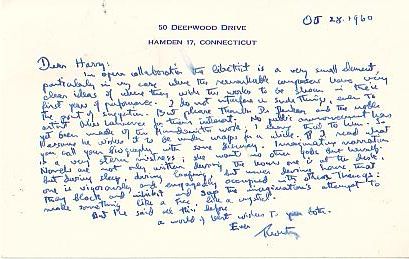 50 DEEPWOOD DRIVE
HAMDEN 17, CONNECTICUT
Oct 28. 1960
Dear Harry:
In opera collaboration the librettist is a very small element,
particularly in my case where the remarkable composers have very
clear ideas of where they wish the works to be shown in their
first years of performance. I do not interfere in such things, even to
the point of suggestion. But please thank Dr. and the noble
artist for their interest. No public announcement has
yet been made of the Hindemith work; I even that to him
reasons he wishes it to be under wraps for a while. I'd read what
you call your with some dismay. Imaginative narration
is a very stern mistress; she wont no other but herself.
Novels are not only written during the hours one is at the desk,
but during sleep, during and during hours that
one is vigorously and engagedly occupied with other things:
they block and inhibit and sap the imagination's attempt to
make something like a tree, like a crystal.
But I've said all this before
a world of best wishes to you both.
Ever